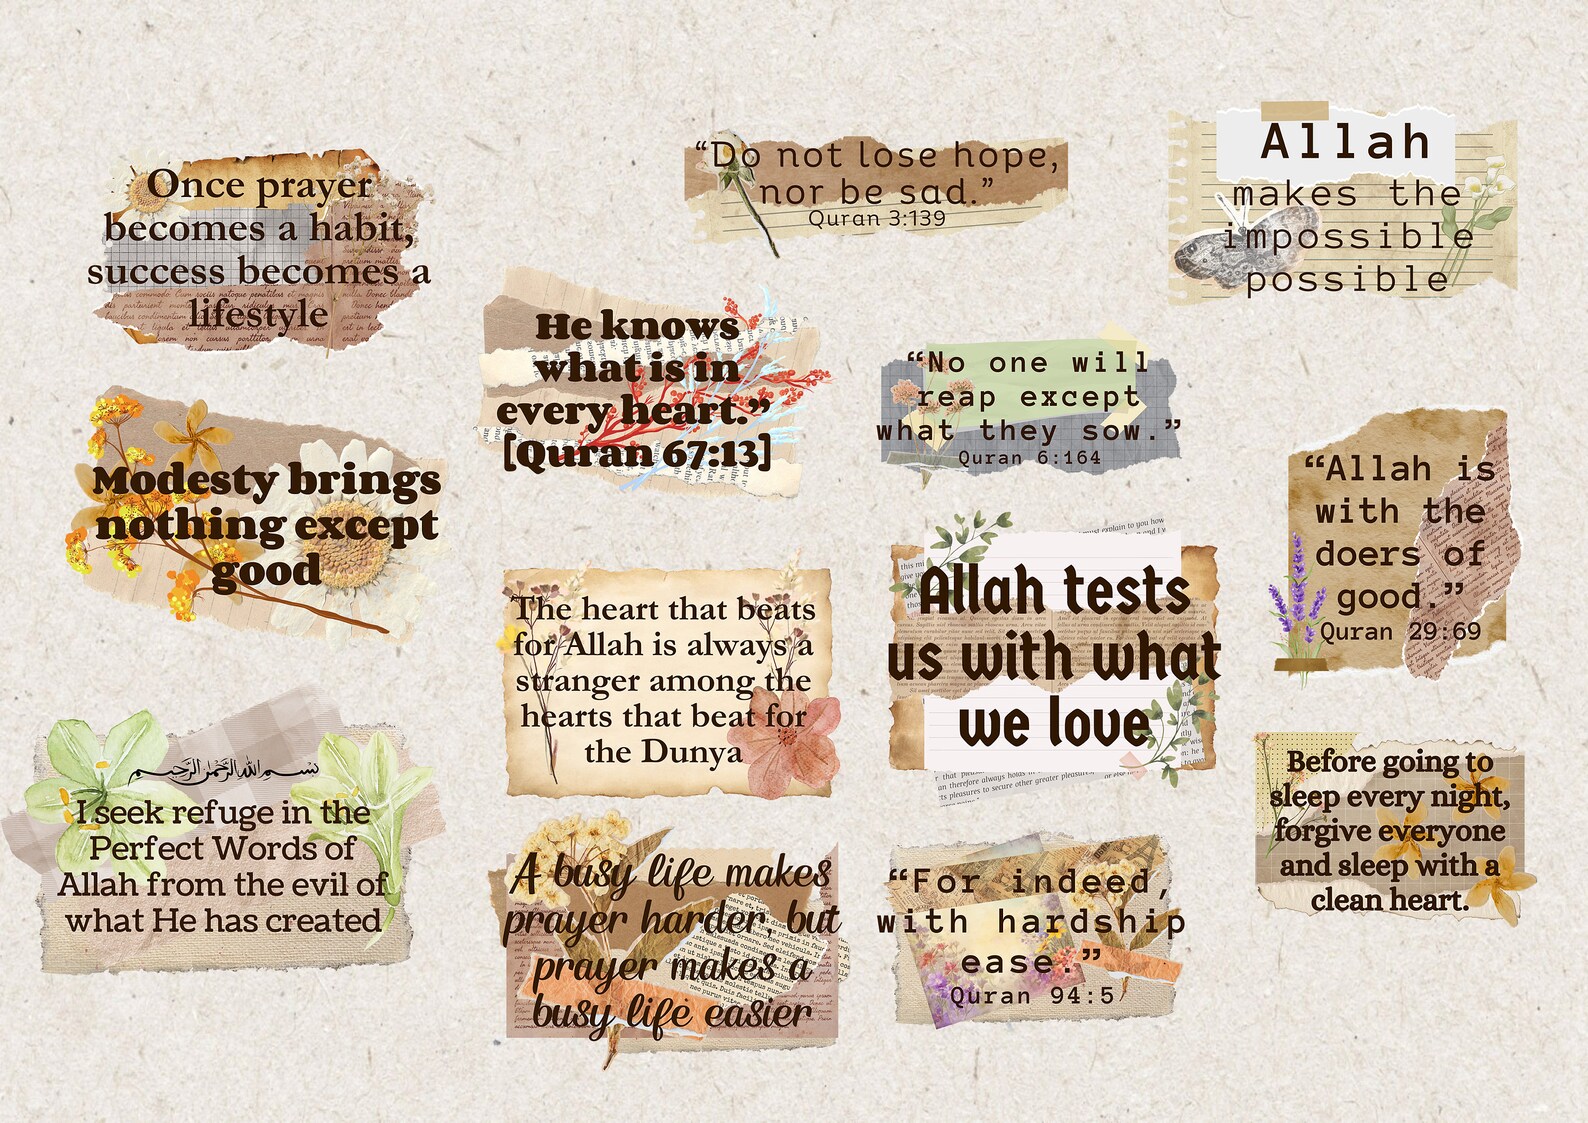 Once prayer
becomes a habit,
success becomes a
lifestyle
“Do not lose hope,
nor be sad.”
Quran 3:139
Allah
makes the
impossible
possible
He knows
what is in
every heart.”
[Quran 67:13]
“No one will
reap except
what they sow.”
Quran 6:164
Modesty brings
nothing except
good
“Allah is
with the
doers of
good.”
Quran 29:69
The heart that beats
for Allah is always a
stranger among the
hearts that beat for
the Dunya
Allah tests
us with what
we love
بسم الله الرحمن الرحيم
I seek refuge in the
Perfect Words of
Allah from the evil of
what He has created
Before going to
sleep every night,
forgive everyone
and sleep with a
clean heart.
A busy life makes
prayer harder, but
prayer makes a
busy life easier
“For indeed,
with hardship
ease.”
Quran 94:5